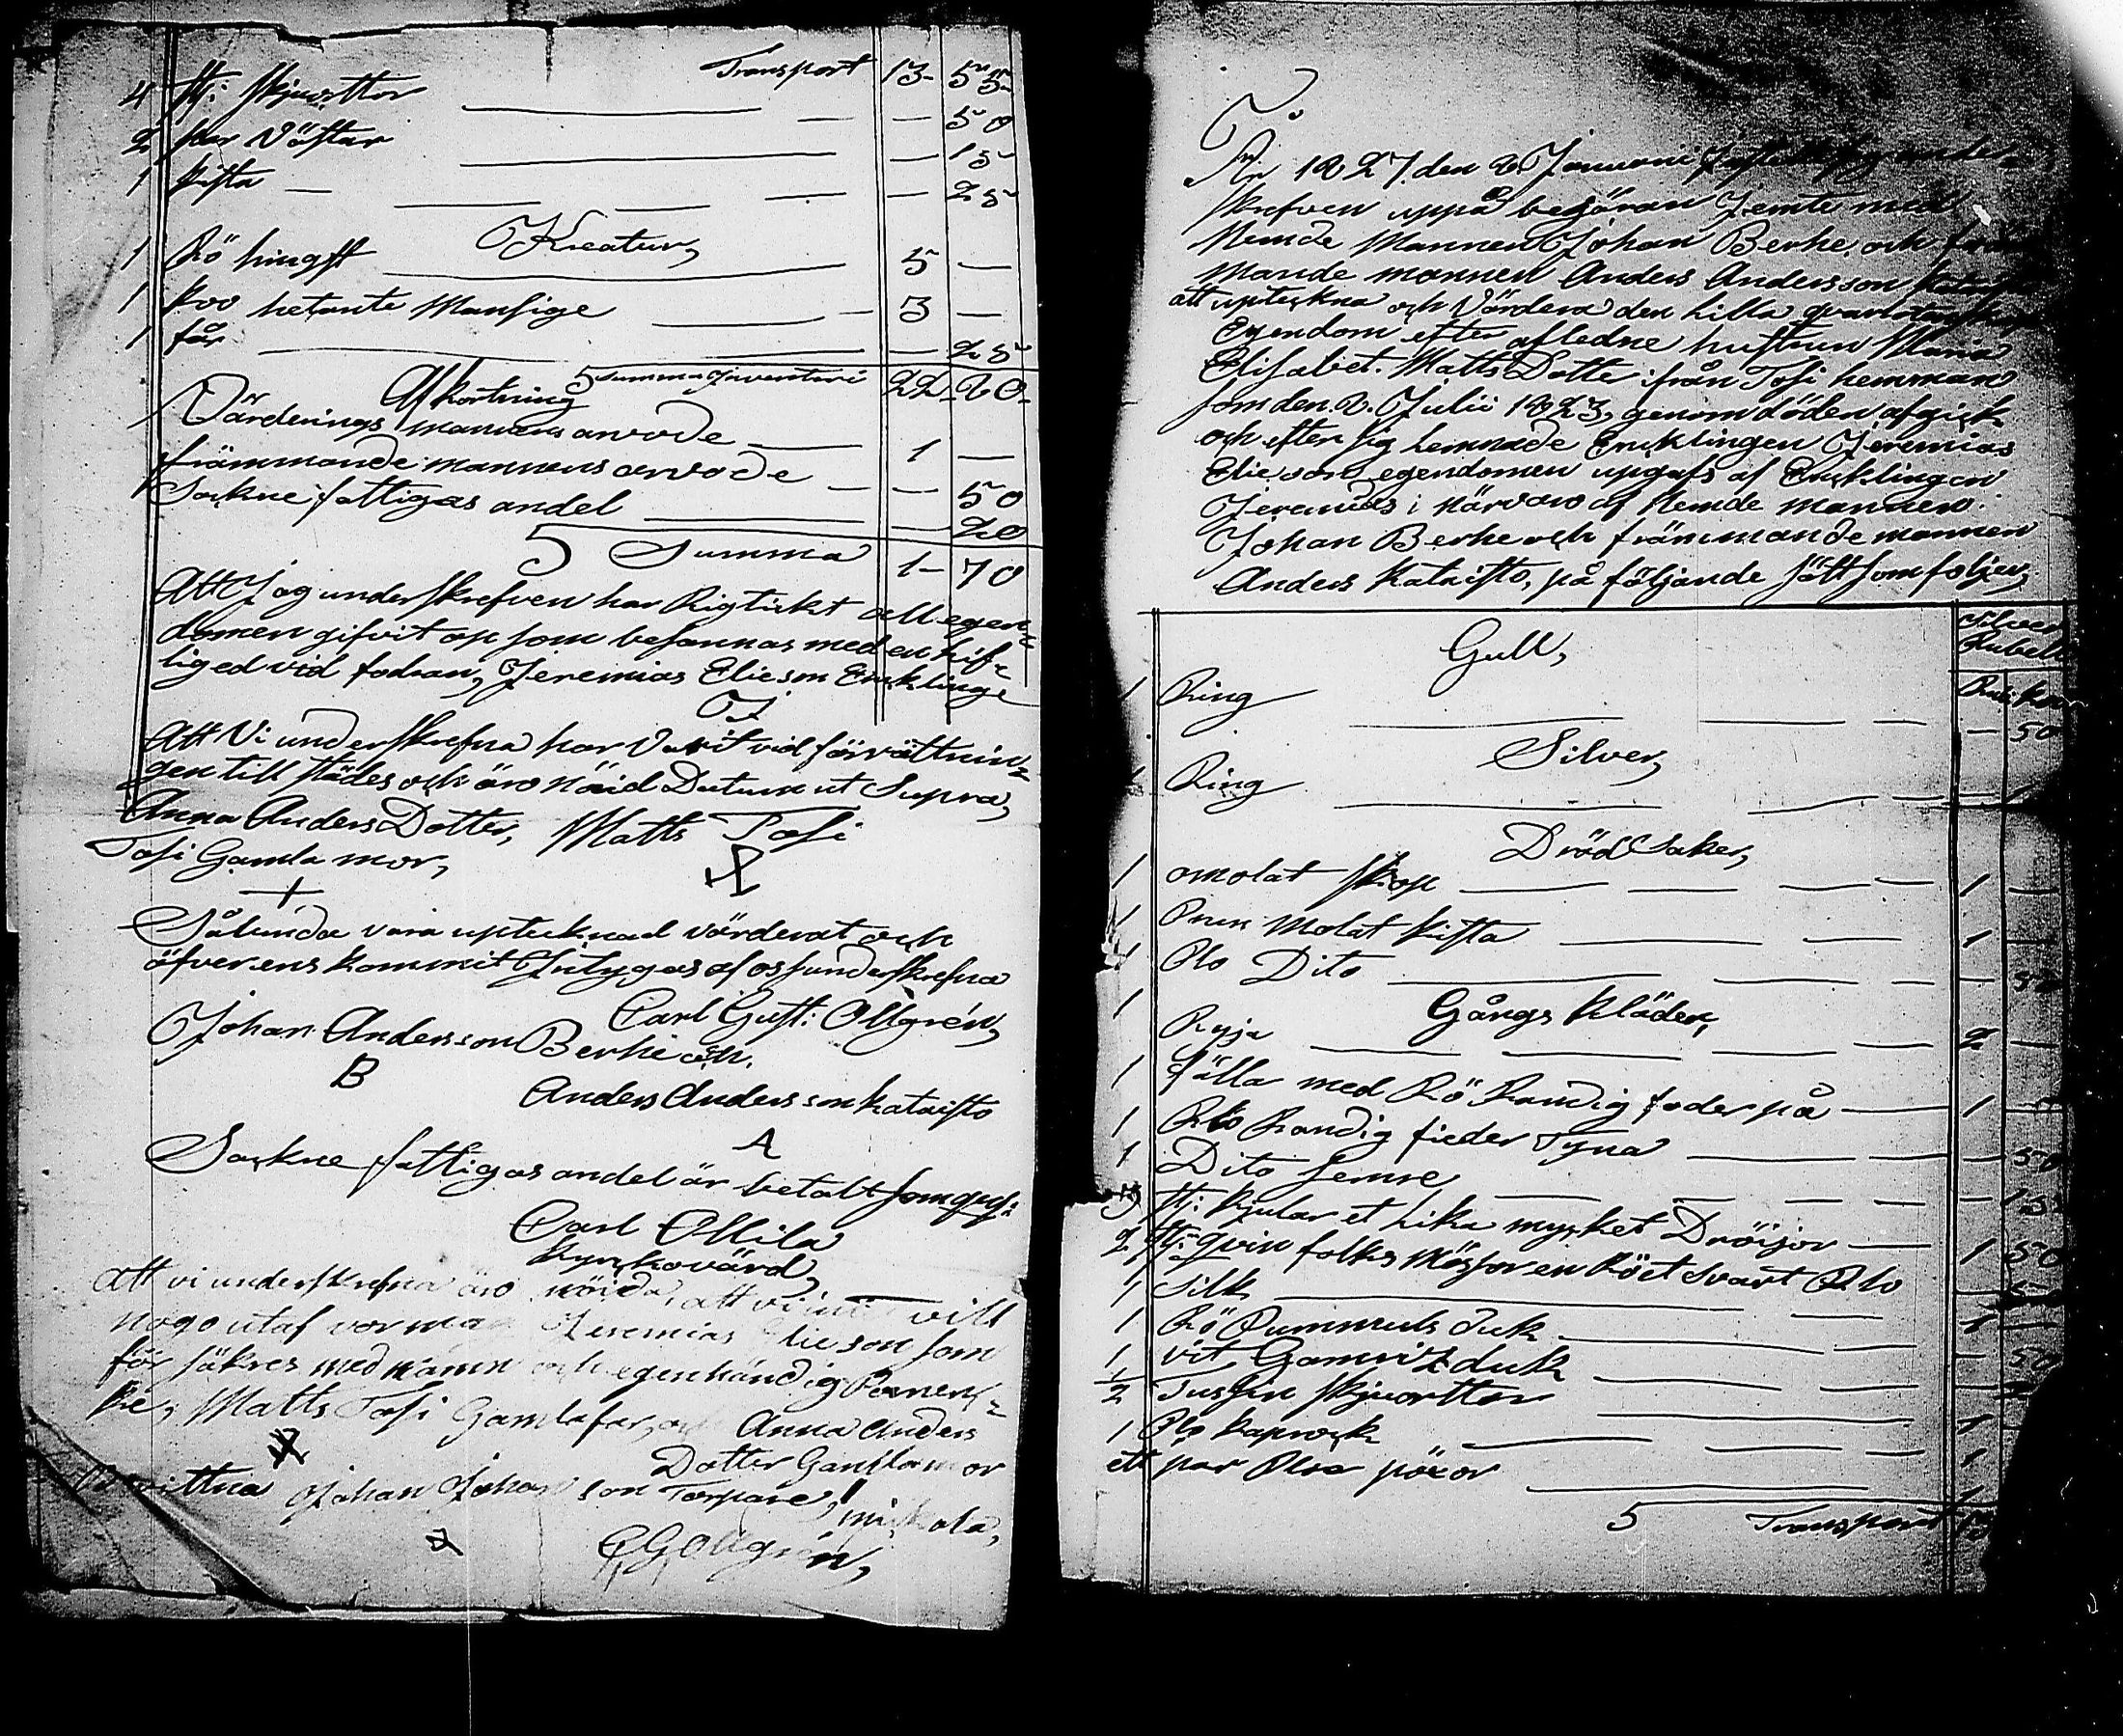 Transport 13- 55-
4 st: skjorttor — — 50
2 par Vöttar — — 15
1 kista — — 25
Kreatur,
1 Rö hingst — 5 —
1 koo hetante Mansige — 3 —
1 får — — 25
Summa Inventari 22-20-
Afkortning
Värderings mannens arvode — 1 —
främmande mannens arvode — — 50
Sockne fattigas andel — — 20
S Summa 1- 70
Att Jag underskrefven har Rigtickt all egen-
domen gifvit op som befannas med en lif-
liged vid fodran, Jeremias Elieson Encklinge
Att Vi underskrefna har Varit vid förrättnin-
gen till städes och äro nöid Datum ut Supra,
Anna Anders Dotter, Matts Tosi
Tosi Gamla mor,
Sålunda vara uptecknad värderat och
öfverens kommit Intygas af oss underskrefna
Carl Gust: Ollgrén,
Johan Andersson Berke och.
B
Anders Andersson Kataisto
A
Sockne fattigas andel är betalt som
Carl Ollila
kyrkovärd,
att vi underskrefna äro nöida, att vi vill
nogo utaf vor Jeremias Elieson som
för säkres med namn och egenhändig
ke, Matts Tosi Gamlafar, Anna Anders
Dotter Gamlamor
vittna Johan Johan son Torpare,
C G Ollgrén,
År 1827. den 8 Januari
skrefven uppå begäran Jemte med
Nemde Mannen Johan Berke. och
mande mannen Anders Andersson
att upteckna och Värdera den lilla
Egendom efter afledne hustrun Maria
Elisabet. Matts Dotter ifrån Tosi hemman
som den. 8. Julii 1823, genom döden afgick
och efter sig lemnade Encklingen Jeremias
Elieson egendomen upgafs af Encklingen
Jeremias i närvaro af Nemde mannen.
Johan Berke och främmande mannen
Anders Kataisto, på följande sätt som följer,
Silver
Rubel
Gull,
1 Ring — — 50
Silver,
1 Ring —
Dröd Saker,
1 omolat skop — 1 —
1 Brun Molat kista — 1 —
1 Blo Dito —
Gångs Kläder,
1 Ryja — 2 —
1 fälla med Rö Randig foder på — 1 —
1 Blo Randig fieder Tyna — — 50
1 Dito semre —
3 st: kjular et lika mycket Dröijor — 1 50
2 st: qvin folks mössor en Rö et Svart Blo
1 Silk
1 Rö Bummuls duk —
1 vit Gamvit duk —
1/2 Tussin skjorttor —
1 Blo kaprock —
ett par Bloa
S Transport 13